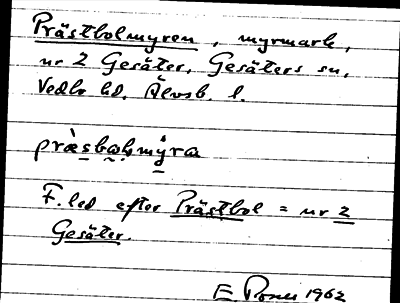 Prästbolmyren, myrmark,
nr 2 Gesäter, Gesäters sn,
Vedbo hd. Älvsb. l.
præ̀sbωḷmy̜ra
F. led efter Prästbol = nr 2
Gesäter.
E 1962